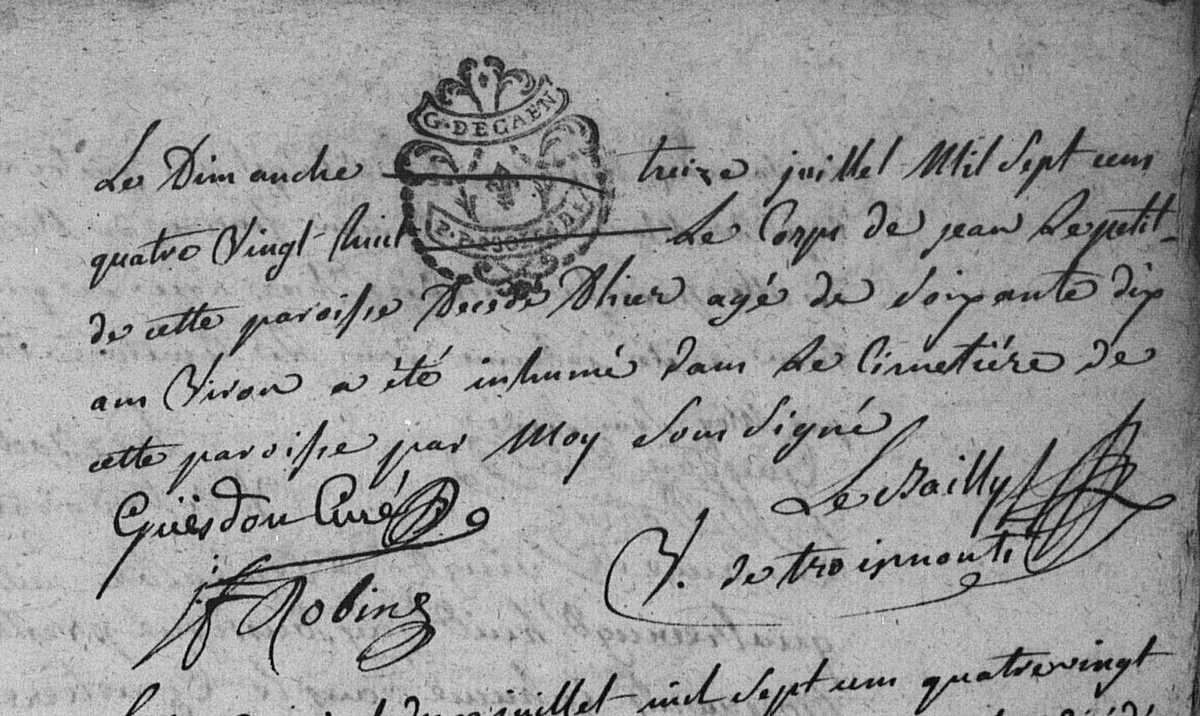 G. DE CAEN
Le Dimanche treize juillet Mil Sept cens
quatre Vingt huit Le Corps de jean Le petit
de cette paroisse Decede Dhier agé de Soixante dix
ans Viron a été inhumé dans Le Cimetiére de
cette paroisse par Moy Soussigné
Guësdon Curé Le Bailly
V. de troismonts
f Robine
juillet mil sept cens quatre vingt